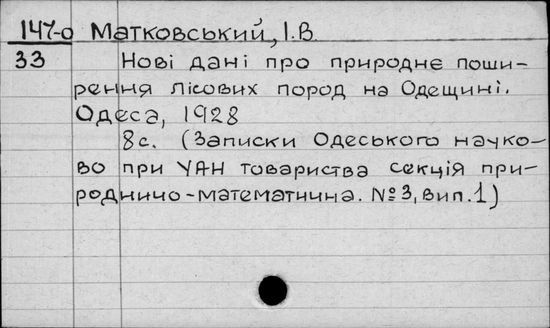 147-о Матковський, І.В.
33 Нові дані про природнє поши-
рення лісових пород на Одещині.
Одеса, 1928
8с. (Записки Одеського науко-
во при УАН товариства секція при-
роднично-математична. №3, вип.1)